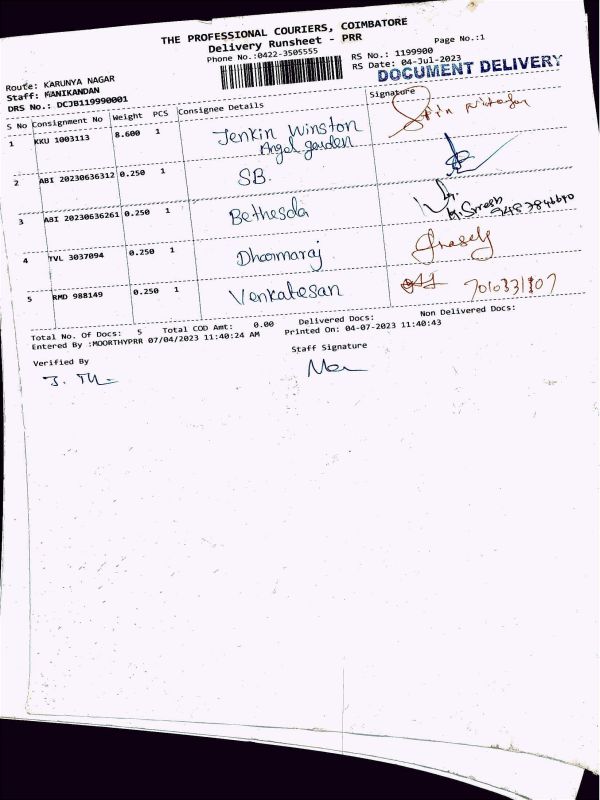 THE PROFESSIONAL COURIERS, COIMBATORE
Delivery Runsheet - PRR
Phone No.:0422-3505555
Page No.:1
RS No.: 1199900
RS Date: 04-Jul-2023
DOCUMENT DELIVERY
Route: KARUNYA NAGAR
Staff: MANIKANDAN
DRS No.: DCJB119990001
S No Consignment No Weight PCS Consignee Details Signature
1 KKU 1003113 8.600 1 Jenkin Winston
Angel garden
2 ABI 20230636312 0.250 1 SB.
3 ABI 20230636261 0.250 1 Bethesda
4 TVL 3037094 0.250 1 Dhoomaraj
5 RMD 988149 0.250 1 Venkatesan
Total No. Of Docs: 5 Total COD Amt: 0.00 Delivered Docs: Non Delivered Docs:
Entered By :MOORTHYPRR 07/04/2023 11:40:24 AM Printed On: 04-07-2023 11:40:43
Verified By Staff Signature